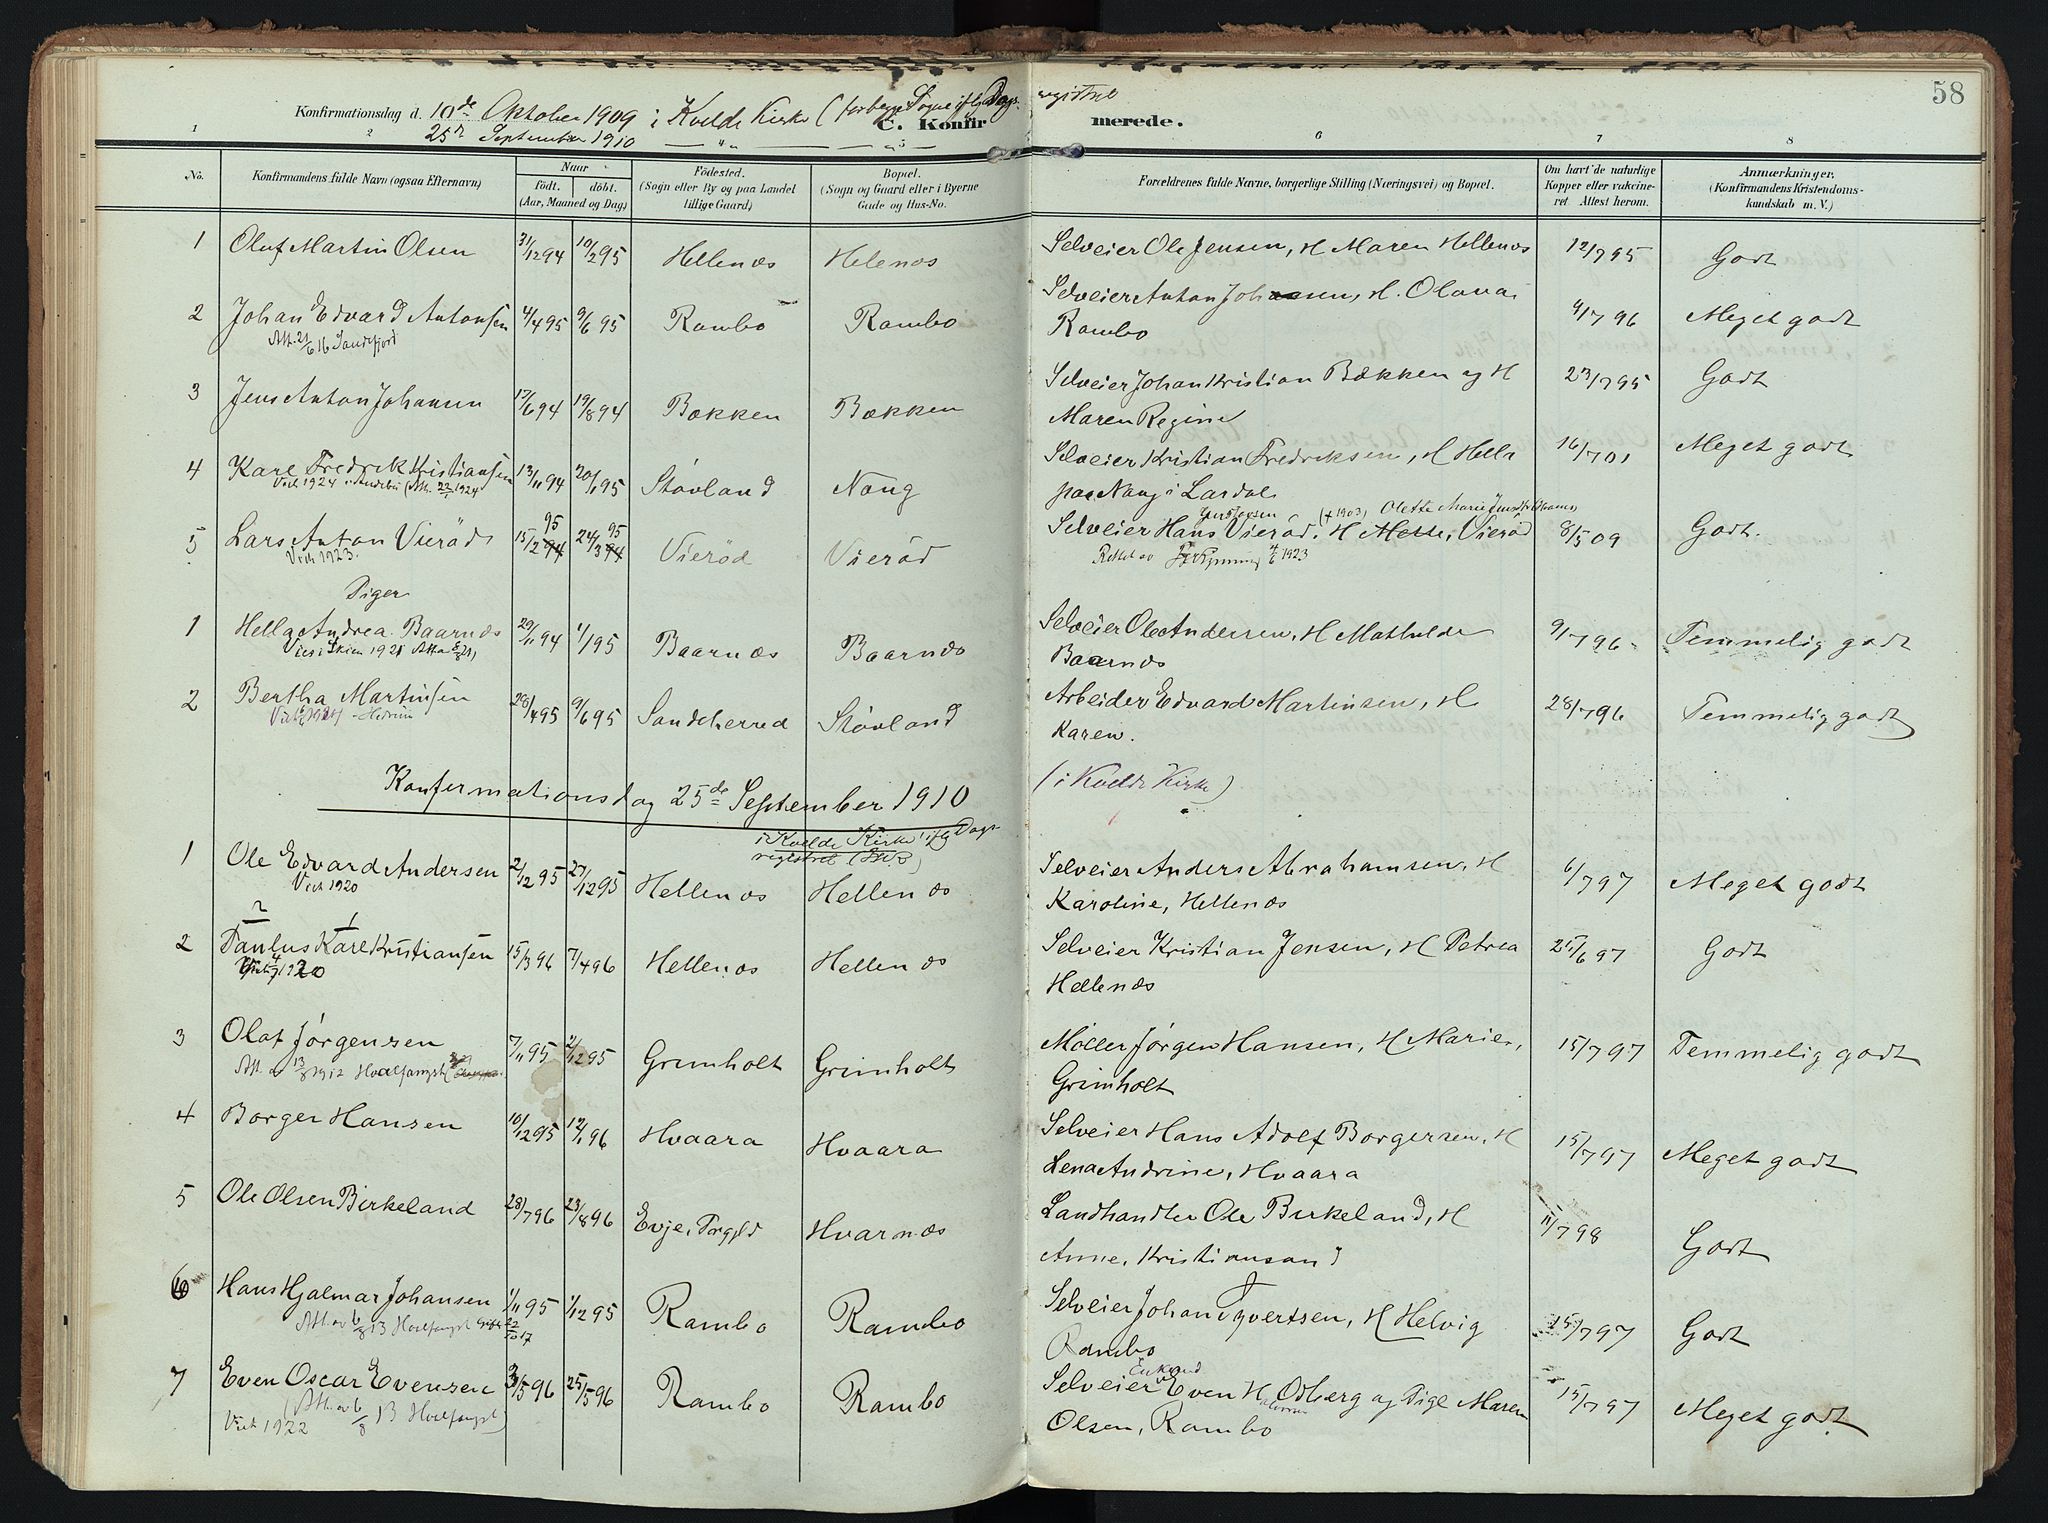 58
Konfirmationsdag d. 10de Oktober 1909 i Kvelde Kirke (for begge Sogne ifg Dags-registret
25de September 1910
C. Konfirmerede.
1 2 4 5 6 7 8
No. Konfirmandens fulde Navn (ogsaa Efternavn) Naar födt. döbt. (Aar, Maaned og Dag) Födested. (Sogn eller By og paa Landet tillige Gaard) Bopæl. (Sogn og Gaard eller i Byerne Gade og Hus-No. Forældrenes fulde Navne, borgerlige Stilling (Næringsvei) og Bopæl. Om havt de naturlige Kopper eller vakcineret. Attest herom. Anmærkninger. (Konfirmandens Kristendomskundskab m. V.)
1 Olaf Martin Olsen 31/12 94 10/2 95 Hellenæs Helenæs Selveier Ole Jensen, H Maren Hellenæs 12/7 95 Godt
2 Johan Edvard Antonsen 4/4 95 9/6 95 Rambo Rambo Selveier Anton Johansen, H. Olava Rambo 9/7 96 Meget godt
Att. 21/6 16 Sandefjord
3 Jens Anton Johansen 17/6 94 19/8 94 Bækken Bækken Selveier Johan Kristian Bækken og H Maren Regine 23/7 95 Godt
4 Karl Fredrik Kristiansen 13/11 94 20/1 95 Stövland Nøug Selveier Kristian Fredriksen, H Hella paa Naug i Lardal 16/7 01 Meget godt
Viet 1924 i Andebu (Att. 22/1 1924
5 Lars Anton Vieröd 15/2 94 95 24/3 94 95 Vieröd Vieröd Selveier Hans Vieröd, H Mette, Vieröd 8/5 09 Godt.
Viet 1923.
(+ 1903) Olette Marie
Rettet av 4/6 1923
Piger
1 Hella Andrea Baarnæs 29/11 94 1/1 95 Baarnæs Baarnæs Selveier Ole Andersen, H Mathilde Baarnæs 9/7 96 Temmelig godt
Vies i Skien 1921
2 Bertha Martinsen 28/4 95 9/6 95 Sandeherred Stövland Arbeider Edvard Martinsen, H Karen. 28/7 96 Temmelig godt
Hedrum
Konfirmationsdag 25de September 1910 (i Kvelde Kirke)
i Kvelde Kirke ifg Dagsregistret
1 Ole Edvard Andersen 2/12 95 27/12 95 Hellenæs Hellenæs Selveier Anders Abrahamsen, H Karoline, Hellenæs 6/7 97 Meget godt
Viet 1920
2 1
2 Paulus Karl Kristiansen 15/3 96 7/4 96 Hellenæs Hellenæs Selveier Kristian Jensen, H Petrea Hellenæs 25/6 97 Godt
1920
3 Olaf Jørgensen 7/11 95 2/12 95 Grimholt Grimholt Möller Jørgen Hansen, H Marie, Grimholt 15/7 97 Temmelig godt
Att. av 13/8 1912 Hvalfangst
4 Borger Hansen 10/12 95 12/1 96 Hvaara Hvaara Selveier Hans Adolf Borgersen, H Lena Andrine, Hvaara 15/7 97 Meget godt
5 Ole Olsen Birkeland 28/7 96 23/8 96 Evje, Hvarnæs Landhandler Ole Birkeland, H Anne, Kristiansand 11/7 98 Godt
6 Hans Hjalmar Johansen 1/11 95 1/12 95 Rambo Rambo Selveier Johan Syvertsen, H Helvig Rambo 15/7 97 Godt
Att. av 6/8 13 Hvalfangst Gift 22/10 17
7 Even Oscar Evensen 3/5 96 25/5 96 Rambo Rambo Selveier Even H. Odberg og Pige Maren Olsen, Rambo 15/7 97 Meget godt
Enkemand
(Att. av 6/8 13 Hvalfangst)
Viet 1922